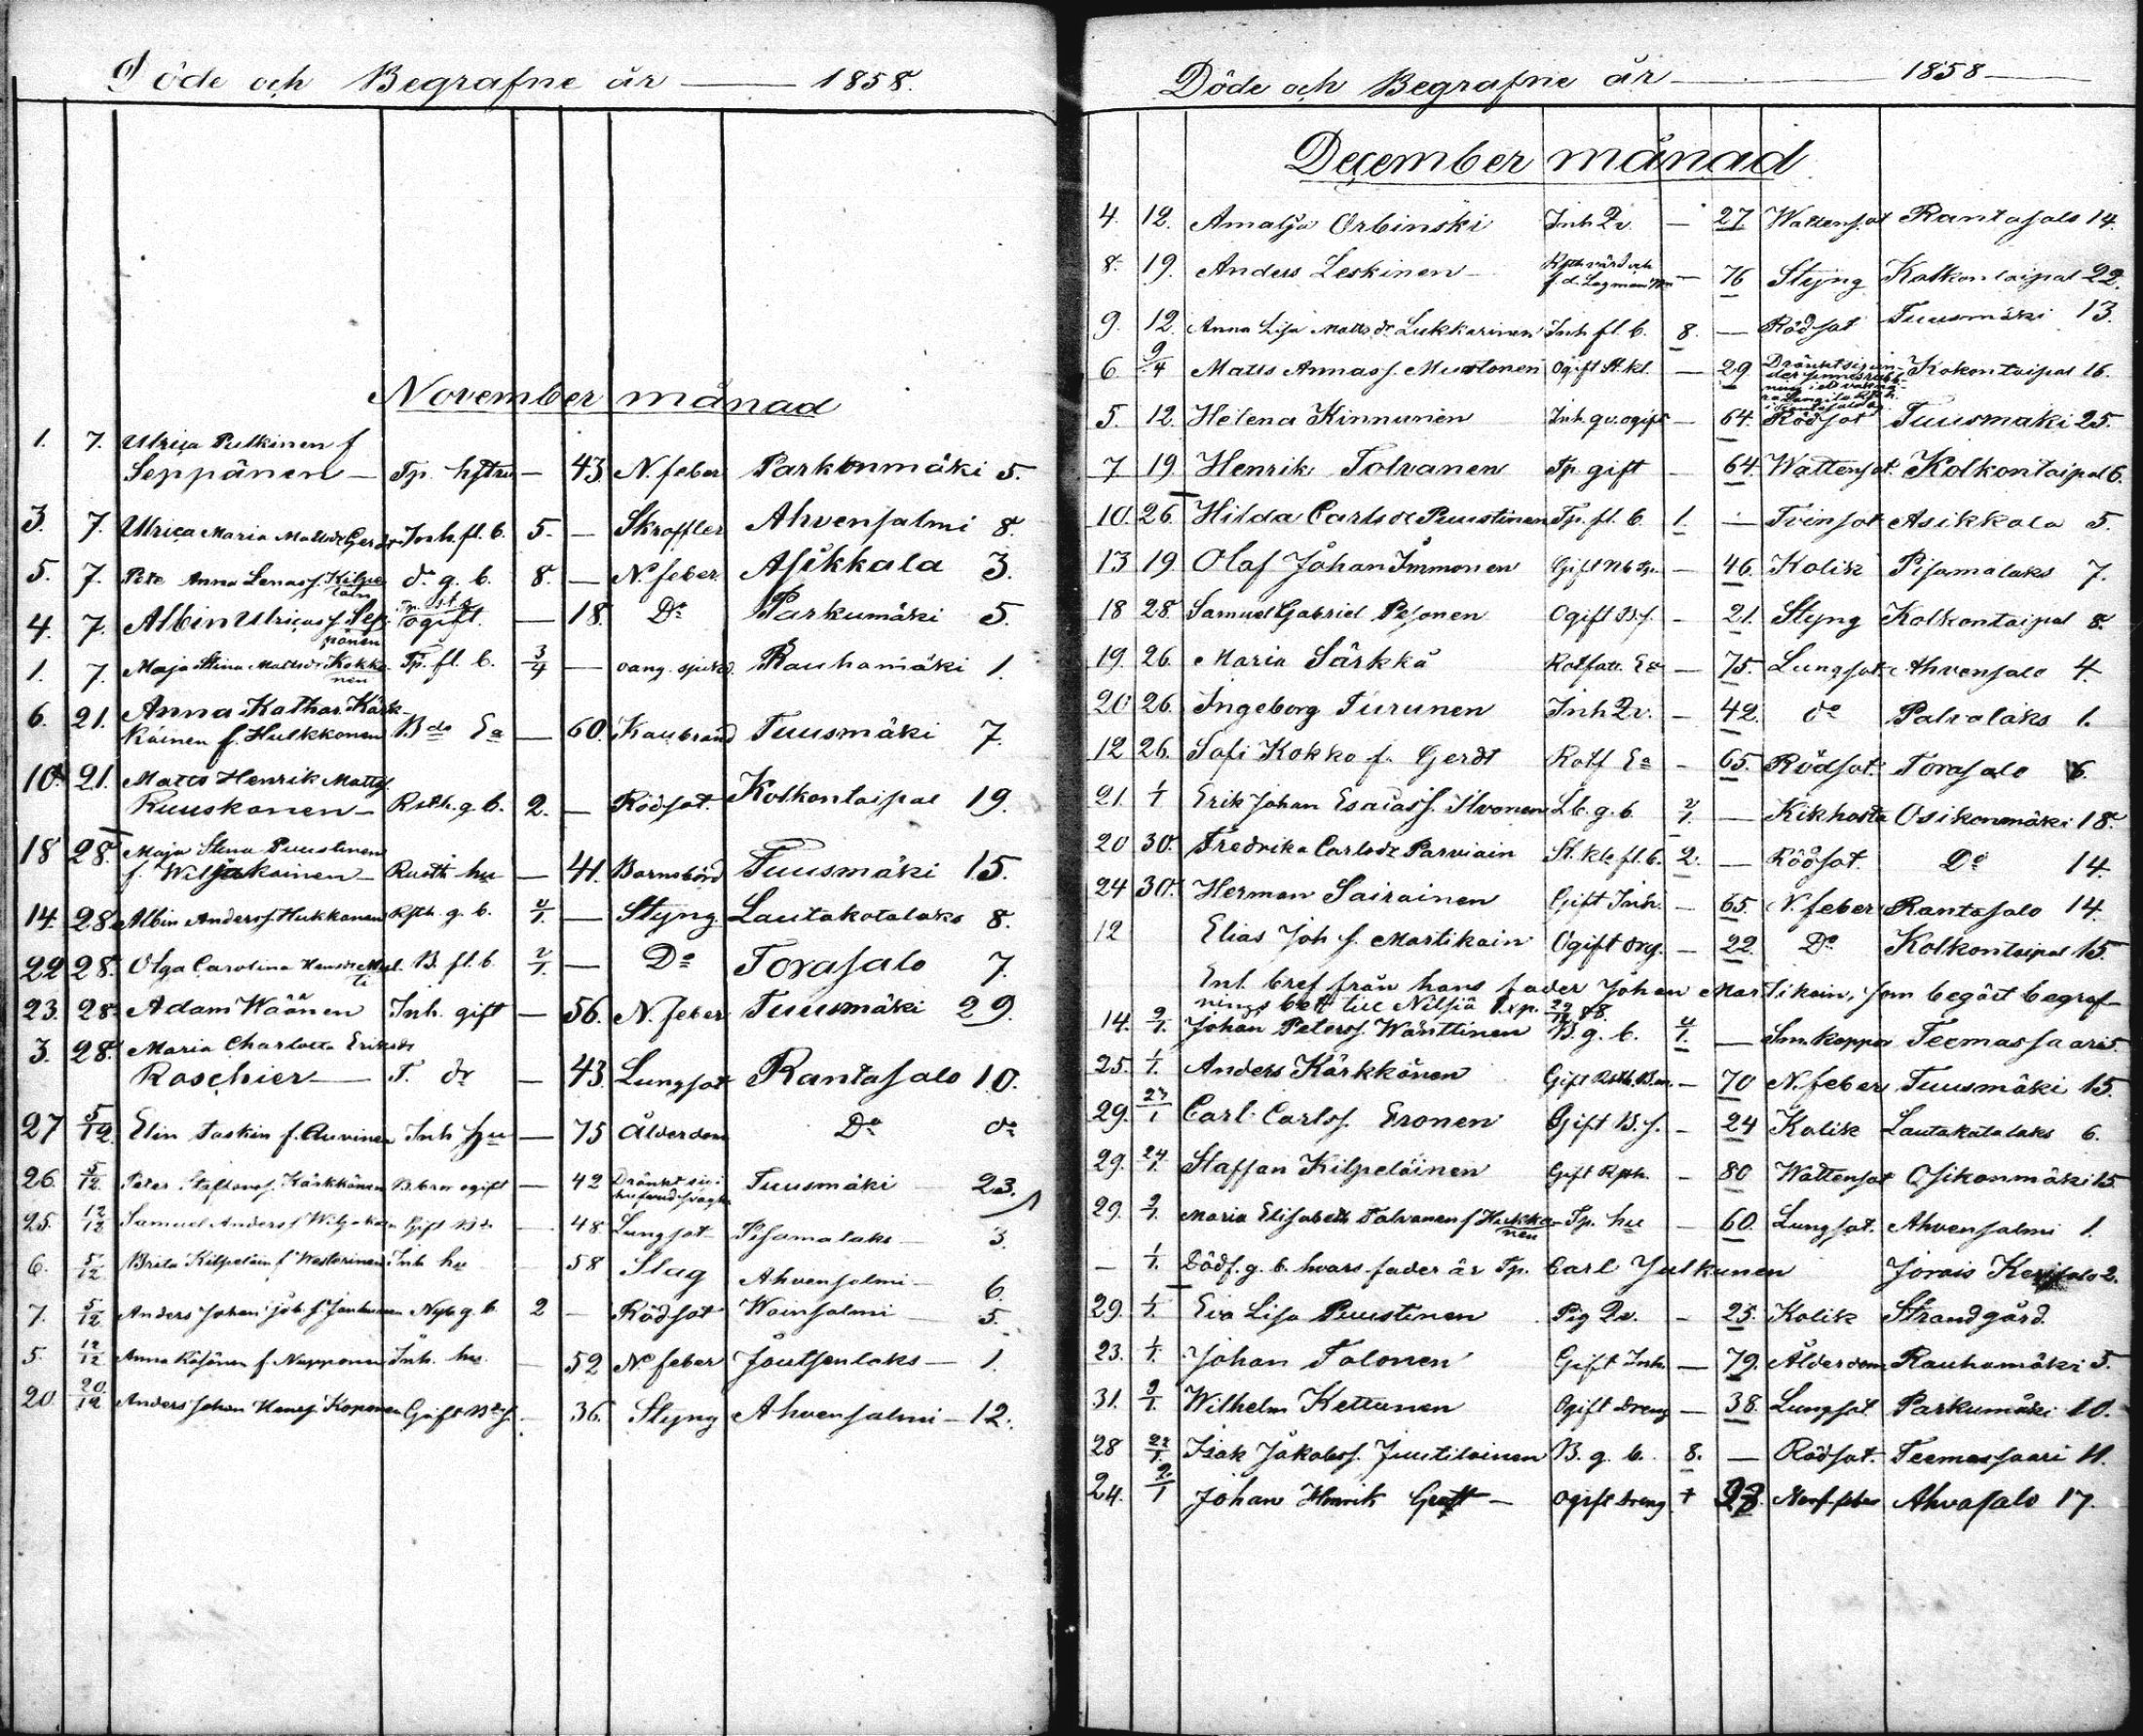 Döde och Begrafne år — 1858.
November månad
1. 7. Ulrica Pulkinen f
Seppänen — Tp. hstru — 43. N. feber Parkonmäki 5.
3. 7. Ulrica Maria Mattsdr Gerdt Inh. fl. b. 5. — Skroffler Ahvensalmi 8.
5. 7. Petr Anna Lenas s. Kilpe d:o g. b. 8. — N. feber. Asikkala 3.
lain
4. 7. Albin Ulricas s. Sep ogift. — 18. D:o Parkumäki 5.
pänen
1. 7. Maja Stina Mattsdr Kokko Tp. fl. b. 3/4 — oang. sjukd. Rauhamäki 1.
nen
6. 21. Anna Kathar. Kärk-
käinen f. Hulkkonen Bde Ea — 60. Kallbrand Tuusmäki 7.
10. 21. Matts Henrik Mattss.
Ruuskanen — Rsth. g. b. 2. — Rödsot. Kolkontaipal 19.
18 28. Maja Stina Puustinen
f. Wiljakainen — Rusth hu — 41. Barnsbörd Tuusmäki 15.
14. 28 Albin Anderss. Hukkanen Rsth. g. b. 4/1. — Styng Lautakotalaks 8.
22 28. Olga Carolina Hansdr Mul. B. fl. b. 2/1. — D:o Torasalo 7.
ti
23. 28. Adam Wäänen Inh. gift — 56. N. feber Tuusmäki 29.
3. 28. Maria Charlotta Eriksdr
Roschier — T. dr — 43. Lungsot Rantasalo 10.
27 5/12. Elin Taskin f. Auvinen Inh hu — 75 Ålderdom D:o d:o
26. 5/12. Peter Staffanss. Kärkkänen B. bror ogift — 42 Dränkt sig i Tuusmäki — 23.
25. 12/12 Samuel Anderss Wiljakain Gift — 48. Lungsot — Pisamalaks — 3.
6. 5/12 Brita Kilpeläin f Westerinen Inh hu — 58 Slag Ahvensalmi — 6.
7. 5/12 Anders Johan Joh. s. Janhunen Nyb. g. b. 2 — Rödsot Wainsalmi — 5.
5. 12/12 Anna Käsönen f Nupponen Inh. hu. — 52 N. feber Joutsenlaks — 1.
20 20/12 Anders Johan Hanss. Koponen Gift — 36. Styng Ahvensalmi — 12.
Döde och Begrafne år — 1858 —
December månad
4. 12. Amalja Orbinski Inh Qv — 27 Wattensot Rantasalo 14.
8. 19. Anders Leskinen — Rsth värd och
f. d. Lagman — 76 Styng Kolkontaipal 22.
9. 12. Anna Lisa Mattsdr Lukkarinen Inh. fl. b. 8. — Rödsot Tuusmäki 13.
6. 9/4 Matts Annas s. Mustonen Ogift St. kl. — 29 Dränkt sig un- Kokontaipal 16.
5. 12. Helena Kinnunen Inh. qv. ogift — 64. Rödsot Tuusmäki 25.
7 19. Henrik Tolvanen Tp. gift — 64. Wattensot. Kolkontaipal 6.
10. 26. Hilda Carlsdr Puustinen Tp. fl. b. 1. — Tvinsot Asikkala 5.
13 19. Olaf Johan Immonen Gift Nb. — 46. Kolik Pisamalaks 7.
18 28. Samuel Gabriel Pesonen Ogift B. s. — 21. Styng Kolkontaipal 8.
19. 26. Maria Särkkä Rotfatt. Ea — 75. Lungsot. Ahvensalo 4.
20 26. Ingeborg Turunen Inh Qv. — 42. d:o Palvalaks 1.
12 26. Sofi Kokko f. Gerdt Rotf Ea — 65. Rödsot. Torasalo 6.
21. 1/1 Erik Johan Esaias s. Ilvonen Lb. g. b. 2/1. — Kikhosta Osikonmäki 18.
20 30. Fredrika Carlsdr Parviain St. kls fl. b. 2. — Rödsot. D:o 14.
24 30. Herman Sairainen Gift Inh. — 65. N. feber Rantasalo 14.
12 Elias Joh. s. Martikain Ogift drg. — 22. D:o Kolkontaipal 15.
Enl. bref från hans fader Johan Martikain, som begärt begraf-
nings bett till Nilsiä Exp. 29/12 58.
14. 9/1. Johan Peterss. Wänttinen B. g. b. 4/1. — Sm. koppor Teemassaari 5.
25. 1/1. Anders Kärkkänen Gift Rsth. B. m. — 70 N. feber Tuusmäki 15.
29. 23/1 Carl Carlss. Eronen Gift B. s. — 24 Kolik Lautakotalaks 6.
29. 24/1. Staffan Kilpeläinen Gift Rsth. — 80 Wattensot Osikonmäki 15.
29. 2/1. Maria Elisabeth Tolvanen f Hukka- Tp. hu — 60. Lungsot. Ahvensalmi 1.
nen
— 1/1. Dödf. g. b. hvars fader är Tp. Carl Julkunen Jorois Kerisalo 2.
29. 1/1. Eva Lisa Puustinen Pig Qv. — 25. Kolik Strandgård
23. 1/1. Johan Tolonen Gift Inh. — 79. Ålderdom Rauhamäki 5.
31. 9/1. Wilhelm Kettunen Ogift Dreng — 38. Lungsot Parkumäki 10.
28 23/1. Isak Jakobss. Juutilainen B. g. b. 8. — Rödsot. Teemassaari 11.
24. 2/1 Johan Henrik — Ogift Dreng + 28. Nerf feber Ahvasalo 17.